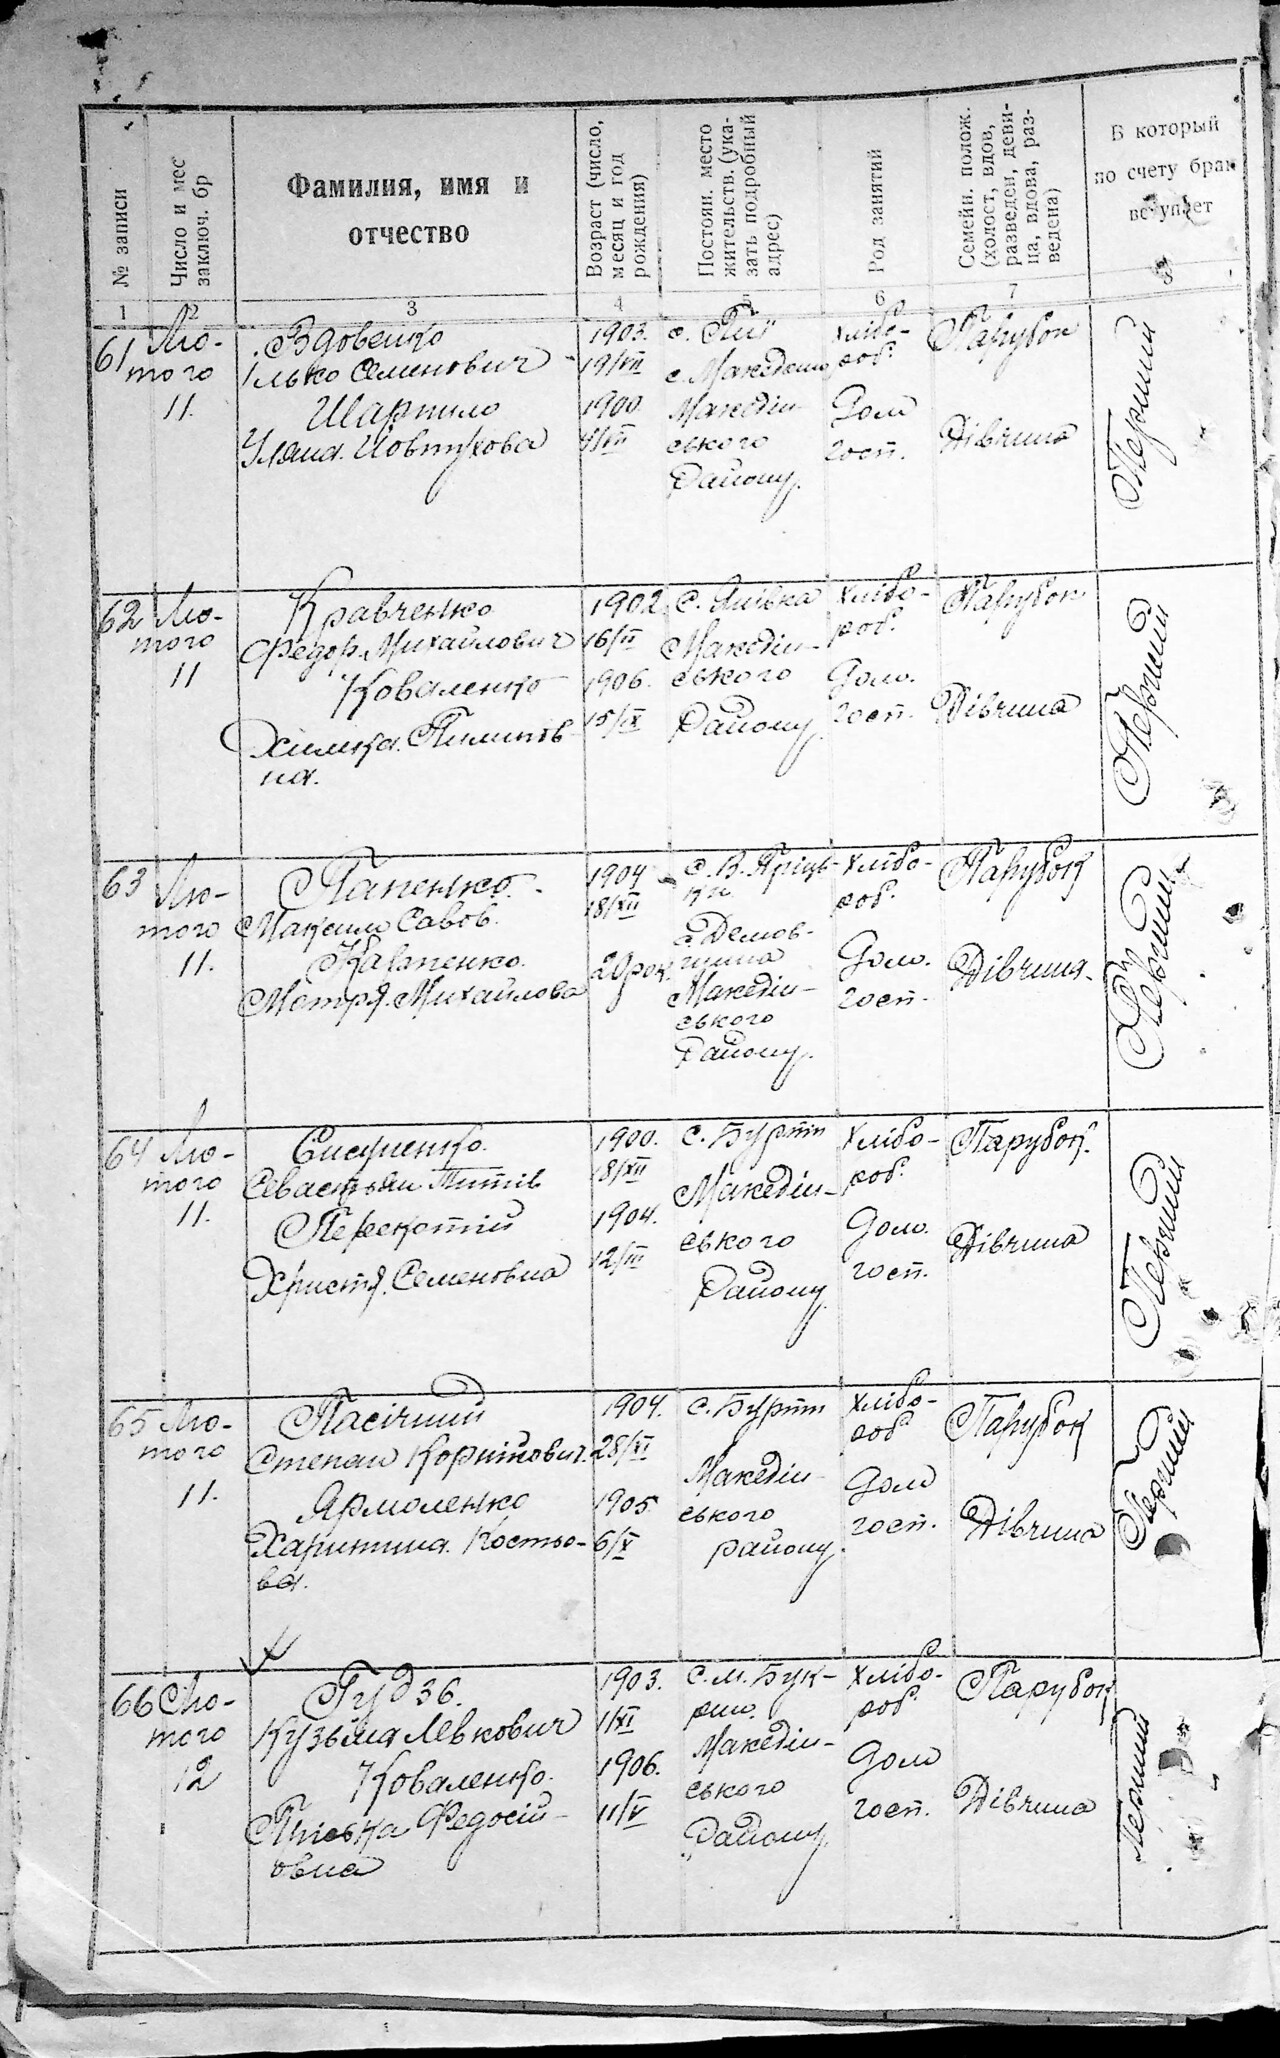 № записи
Число и мес
заключ. бр
Фамилия, имя и
отчество
Возраст (число,
месяц и год
рождения)
Постоян. место
жительств. (ука-
зать подробный
адрес)
Род занятий
Семейн. полож.
(холост, вдов,
разведен, деви-
ца, вдова, раз-
ведена)
В который
по счету брак
вступает
1
2
3
4
5
6
7
8
61
Лю-
того
11.
Вдовенко
Ілько Семенович
Шарпило
Уляна. Йовтухова
1903.
19/VII
1900
с.
с. Македони
Македін-
ського
Району.
хлібо-
роб.
Дом
госп.
Парубок
Дівчина
Перший
62
Лю-
того
11
Кравченко
Федор. Михайлович
Коваленко
Химка. Пилипов-
на.
1902.
16/II
1906.
15/IX
с. Янівка
Македін-
ського
Району.
Хлібо-
роб.
Дом.
госп.
Парубок
Дівчина
Перший
63
Лю-
того
11.
Папенко.
Максим Савов.
Мотря. Михайлова
1904
18/XII
20 рок.
с. В. Пріць-
ки
Македін-
ського
Району.
Хлібо-
роб.
Дом.
госп.
Парубок
Дівчина.
Перший
64
Лю-
того
11.
Севастьян Титів
Перекотій
Христя. Семеновна
1900.
18/XII
1904.
12/III
с. Бурти
Македін-
ського
Району
Хлібо-
роб.
Дом.
госп.
Парубок.
Дівчина
Перший
65
Лю-
того
11.
Пасічний
Степан Корнійович.
Ярмоленко
Харитина. Костьо-
ва.
1904.
28/XI
1905
6/X
с. Бурти
Македін-
ського
району.
Хлібо-
роб
Дом
госп.
Парубок
Дівчина
Перший
66
Лю-
того
12
Гудзь.
Кузьма Левкович
Коваленко.
Федосій-
овна
1903.
1/XI
1906.
11/V
с. М. Бук-
рин.
Македін-
ського
Району,
Хлібо-
роб.
Дом
госп.
Парубок
Дівчина
Перший